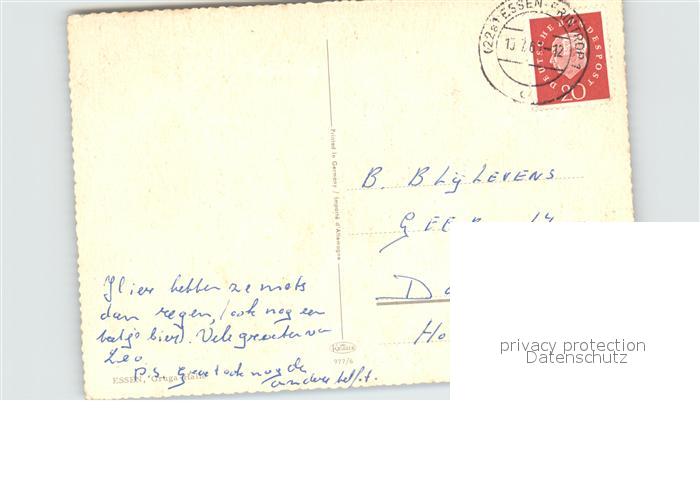 (22a) ESSEN-FRINTROP 1
DEUTSCHE BUNDESPOST
20
Printed in Germany / Imprimé d'Allemagne
B. BLijLEVENS
GEE
D
Ho
Hier hebben ze niets
dan regen, (ook nog een
batje bier). Vele groeten van
Leo
P.S. Groet ook nog de
andere
ESSEN, Gruga
KRÜGER
977/6
privacy protection
Datenschutz